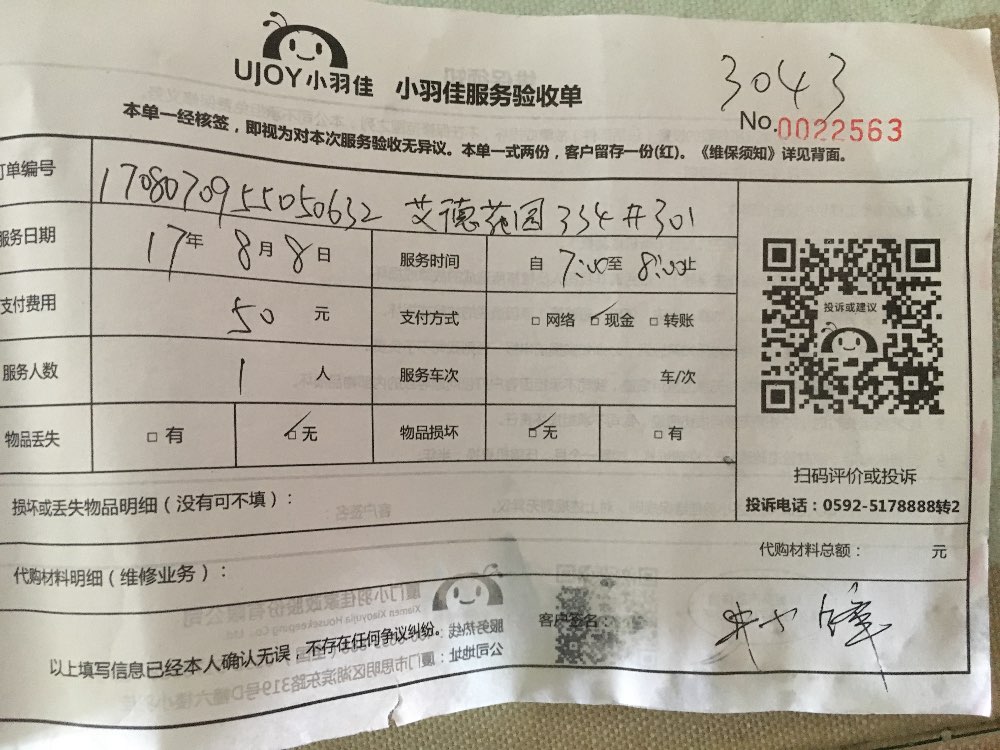 UJOY小羽佳 小羽佳服务验收单
3043
No.0022563
本单一经核签，即视为对本次服务验收无异议。本单一式两份，客户留存一份(红)。《维保须知》详见背面。
订单编号 170807095505063​2 艾德花园 334#301
服务日期 17年 8月 8日 服务时间 自 7:00至 8:00止
支付费用 50 元 支付方式 □ 网络 ☑ 现金 □ 转账
投诉或建议
服务人数 1 人 服务车次 车/次
物品丢失 □ 有 ☑ 无 物品损坏 ☑ 无 □ 有
扫码评价或投诉
投诉电话：0592-5178888转2
损坏或丢失物品明细（没有可不填）：
代购材料总额： 元
代购材料明细（维修业务）：
客户签名：
以上填写信息已经本人确认无误，不存在任何争议纠纷。